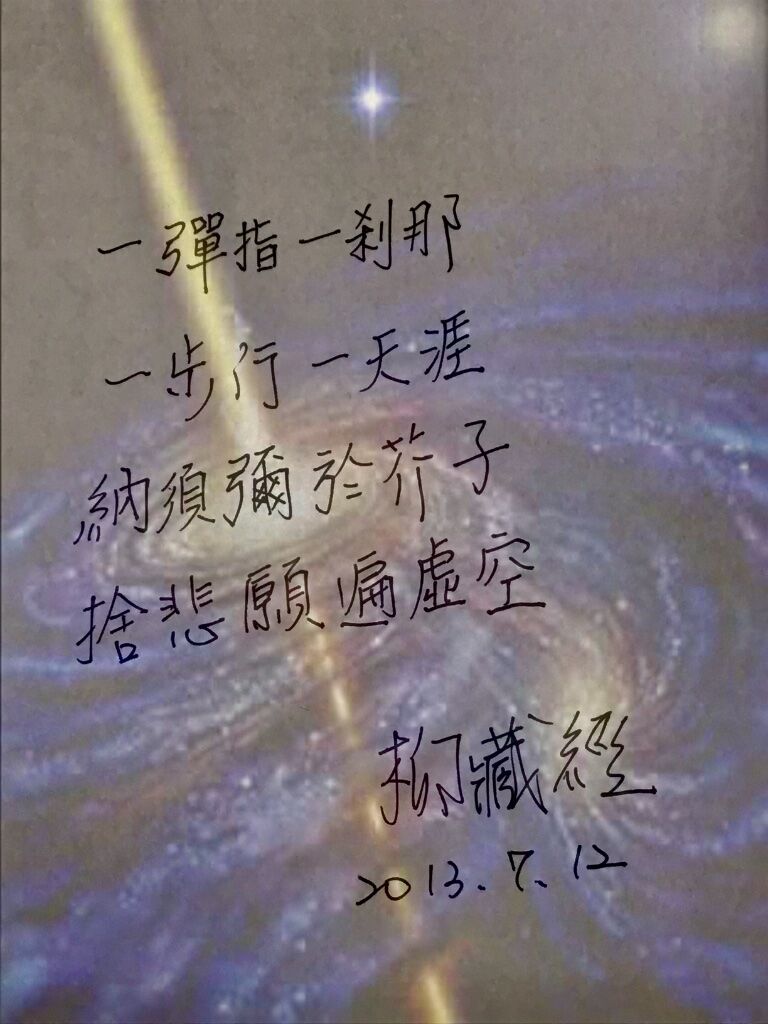 一彈指一剎那
一步行一天涯
納須彌於芥子
捨悲願遍虛空
柳藏經
2013.7.12